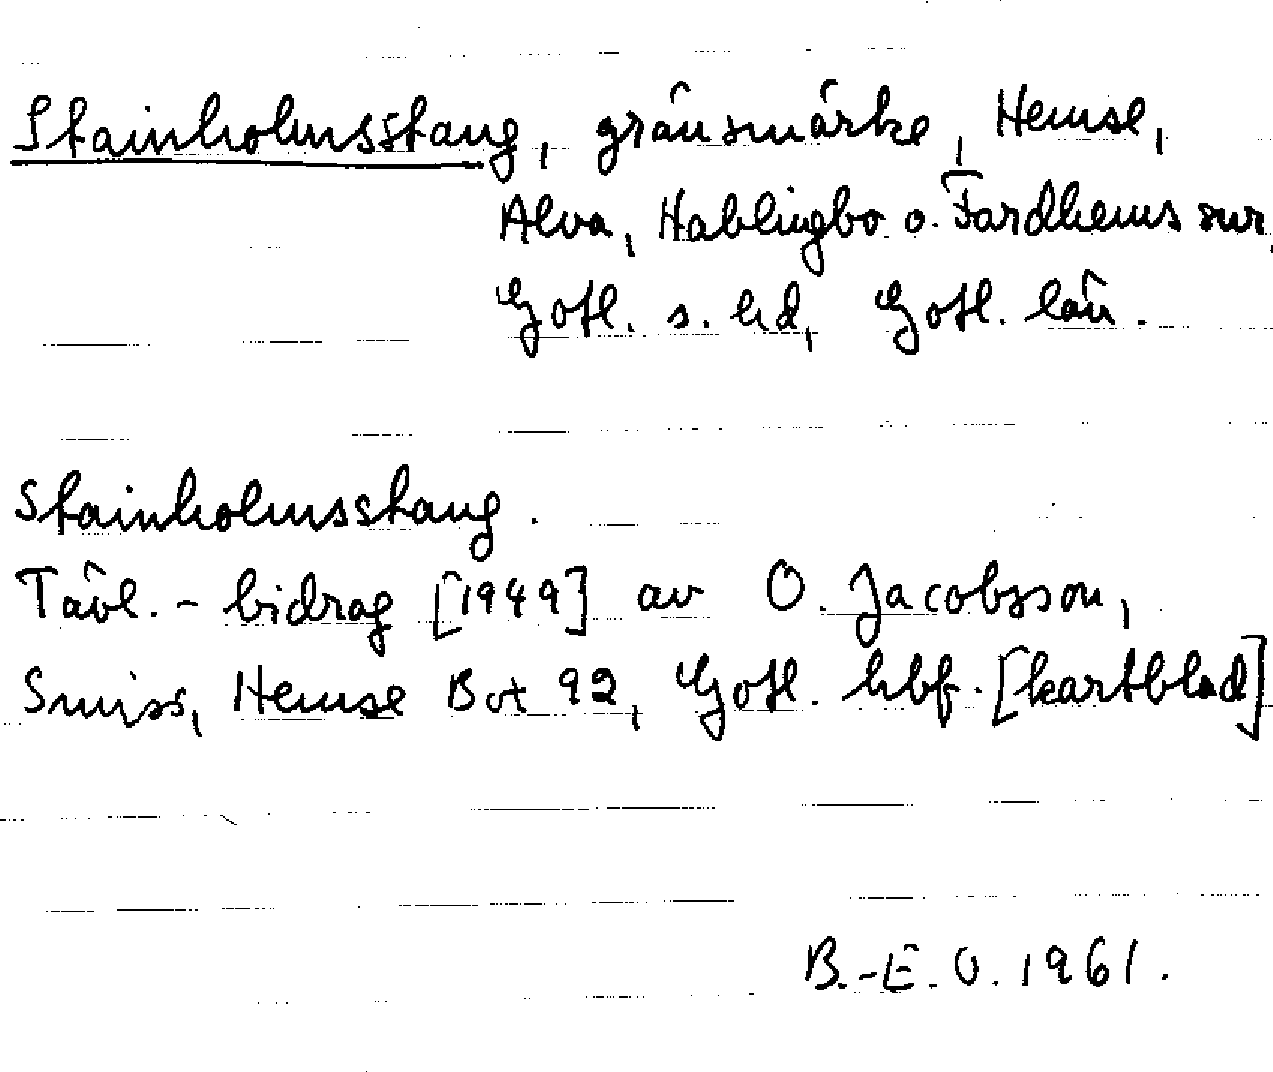 Stainholmsstang, gränsmärke, Hemse,
Alva, Hablingbo o. Fardhems snr,
Gotl. s. hd, Gotl. län.
Stainholmsstang.
Tävl.-bidrag [1949] av O. Jacobsson,
Smiss, Hemse Box 92, Gotl. hbf. [kartblad]
B.-E. O. 1961.